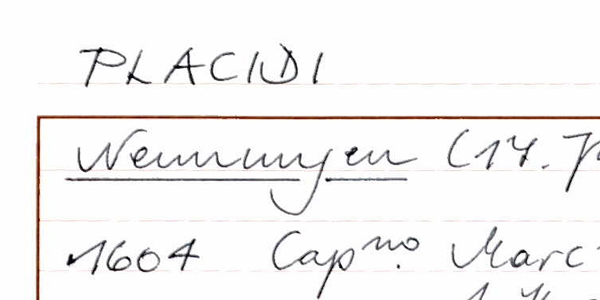 PLACIDI
Nennungen (17.
1604 Capno. Marc